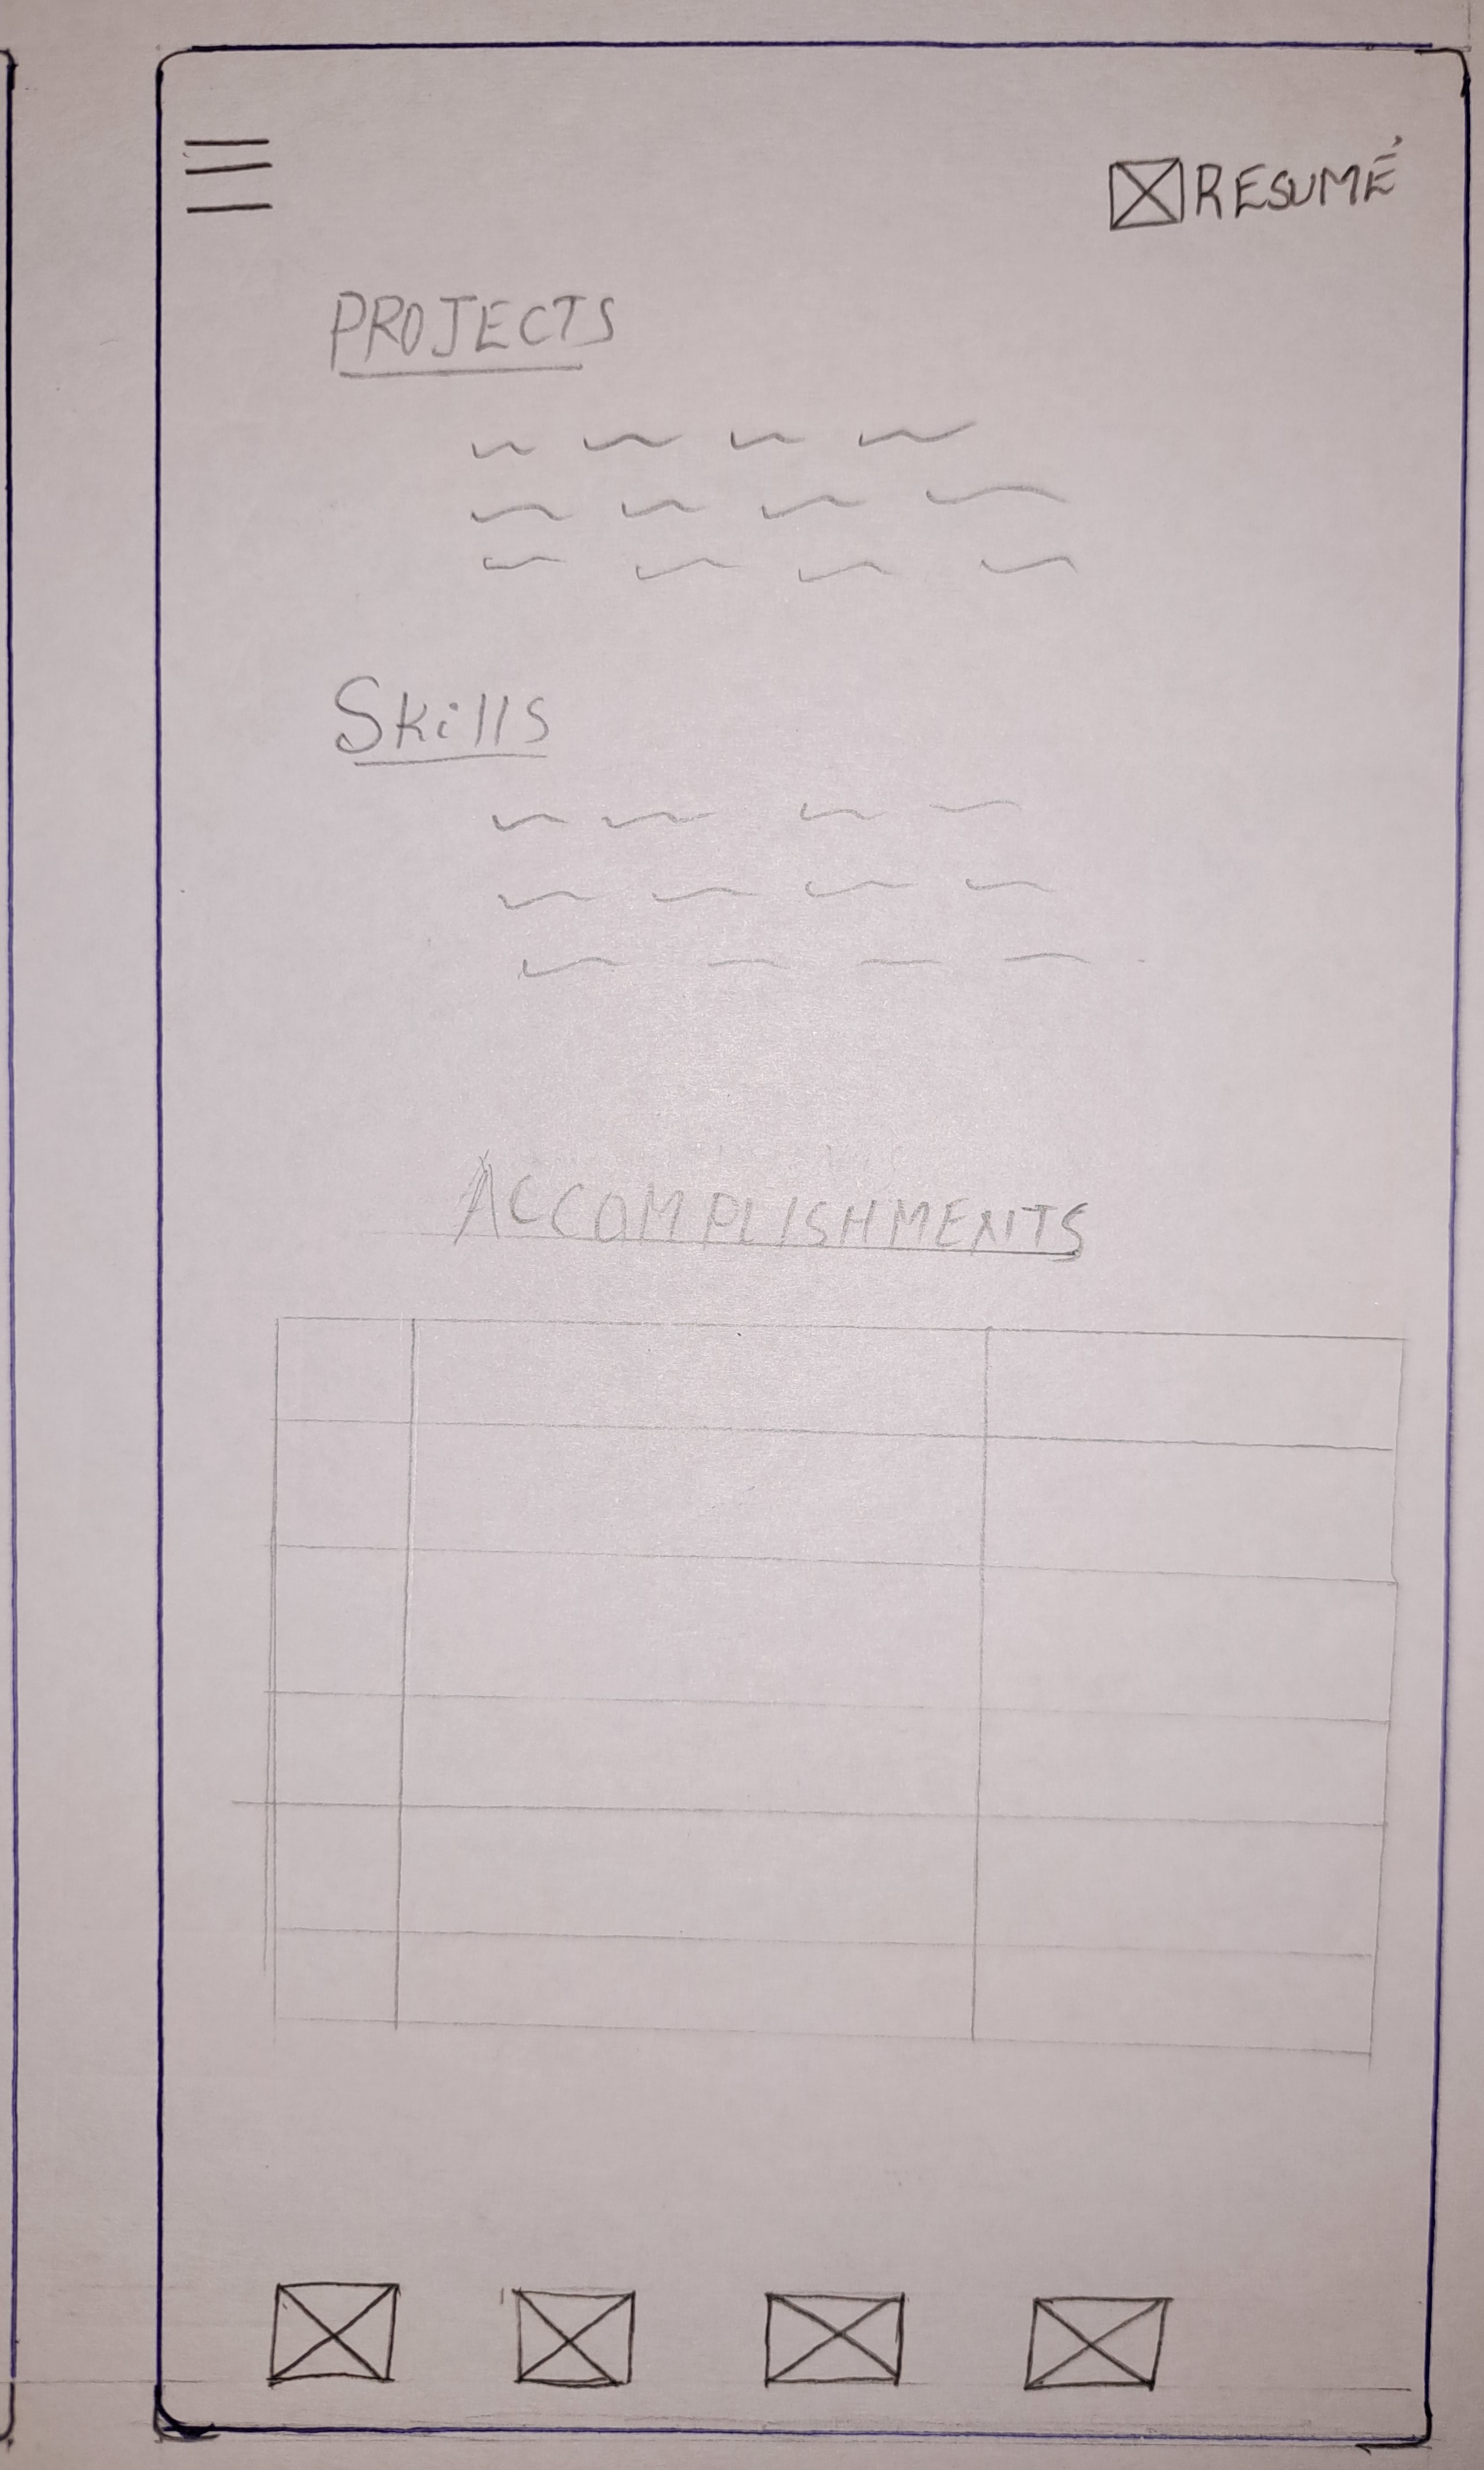 RESUMÉ
PROJECTS
Skills
ACCOMPLISHMENTS